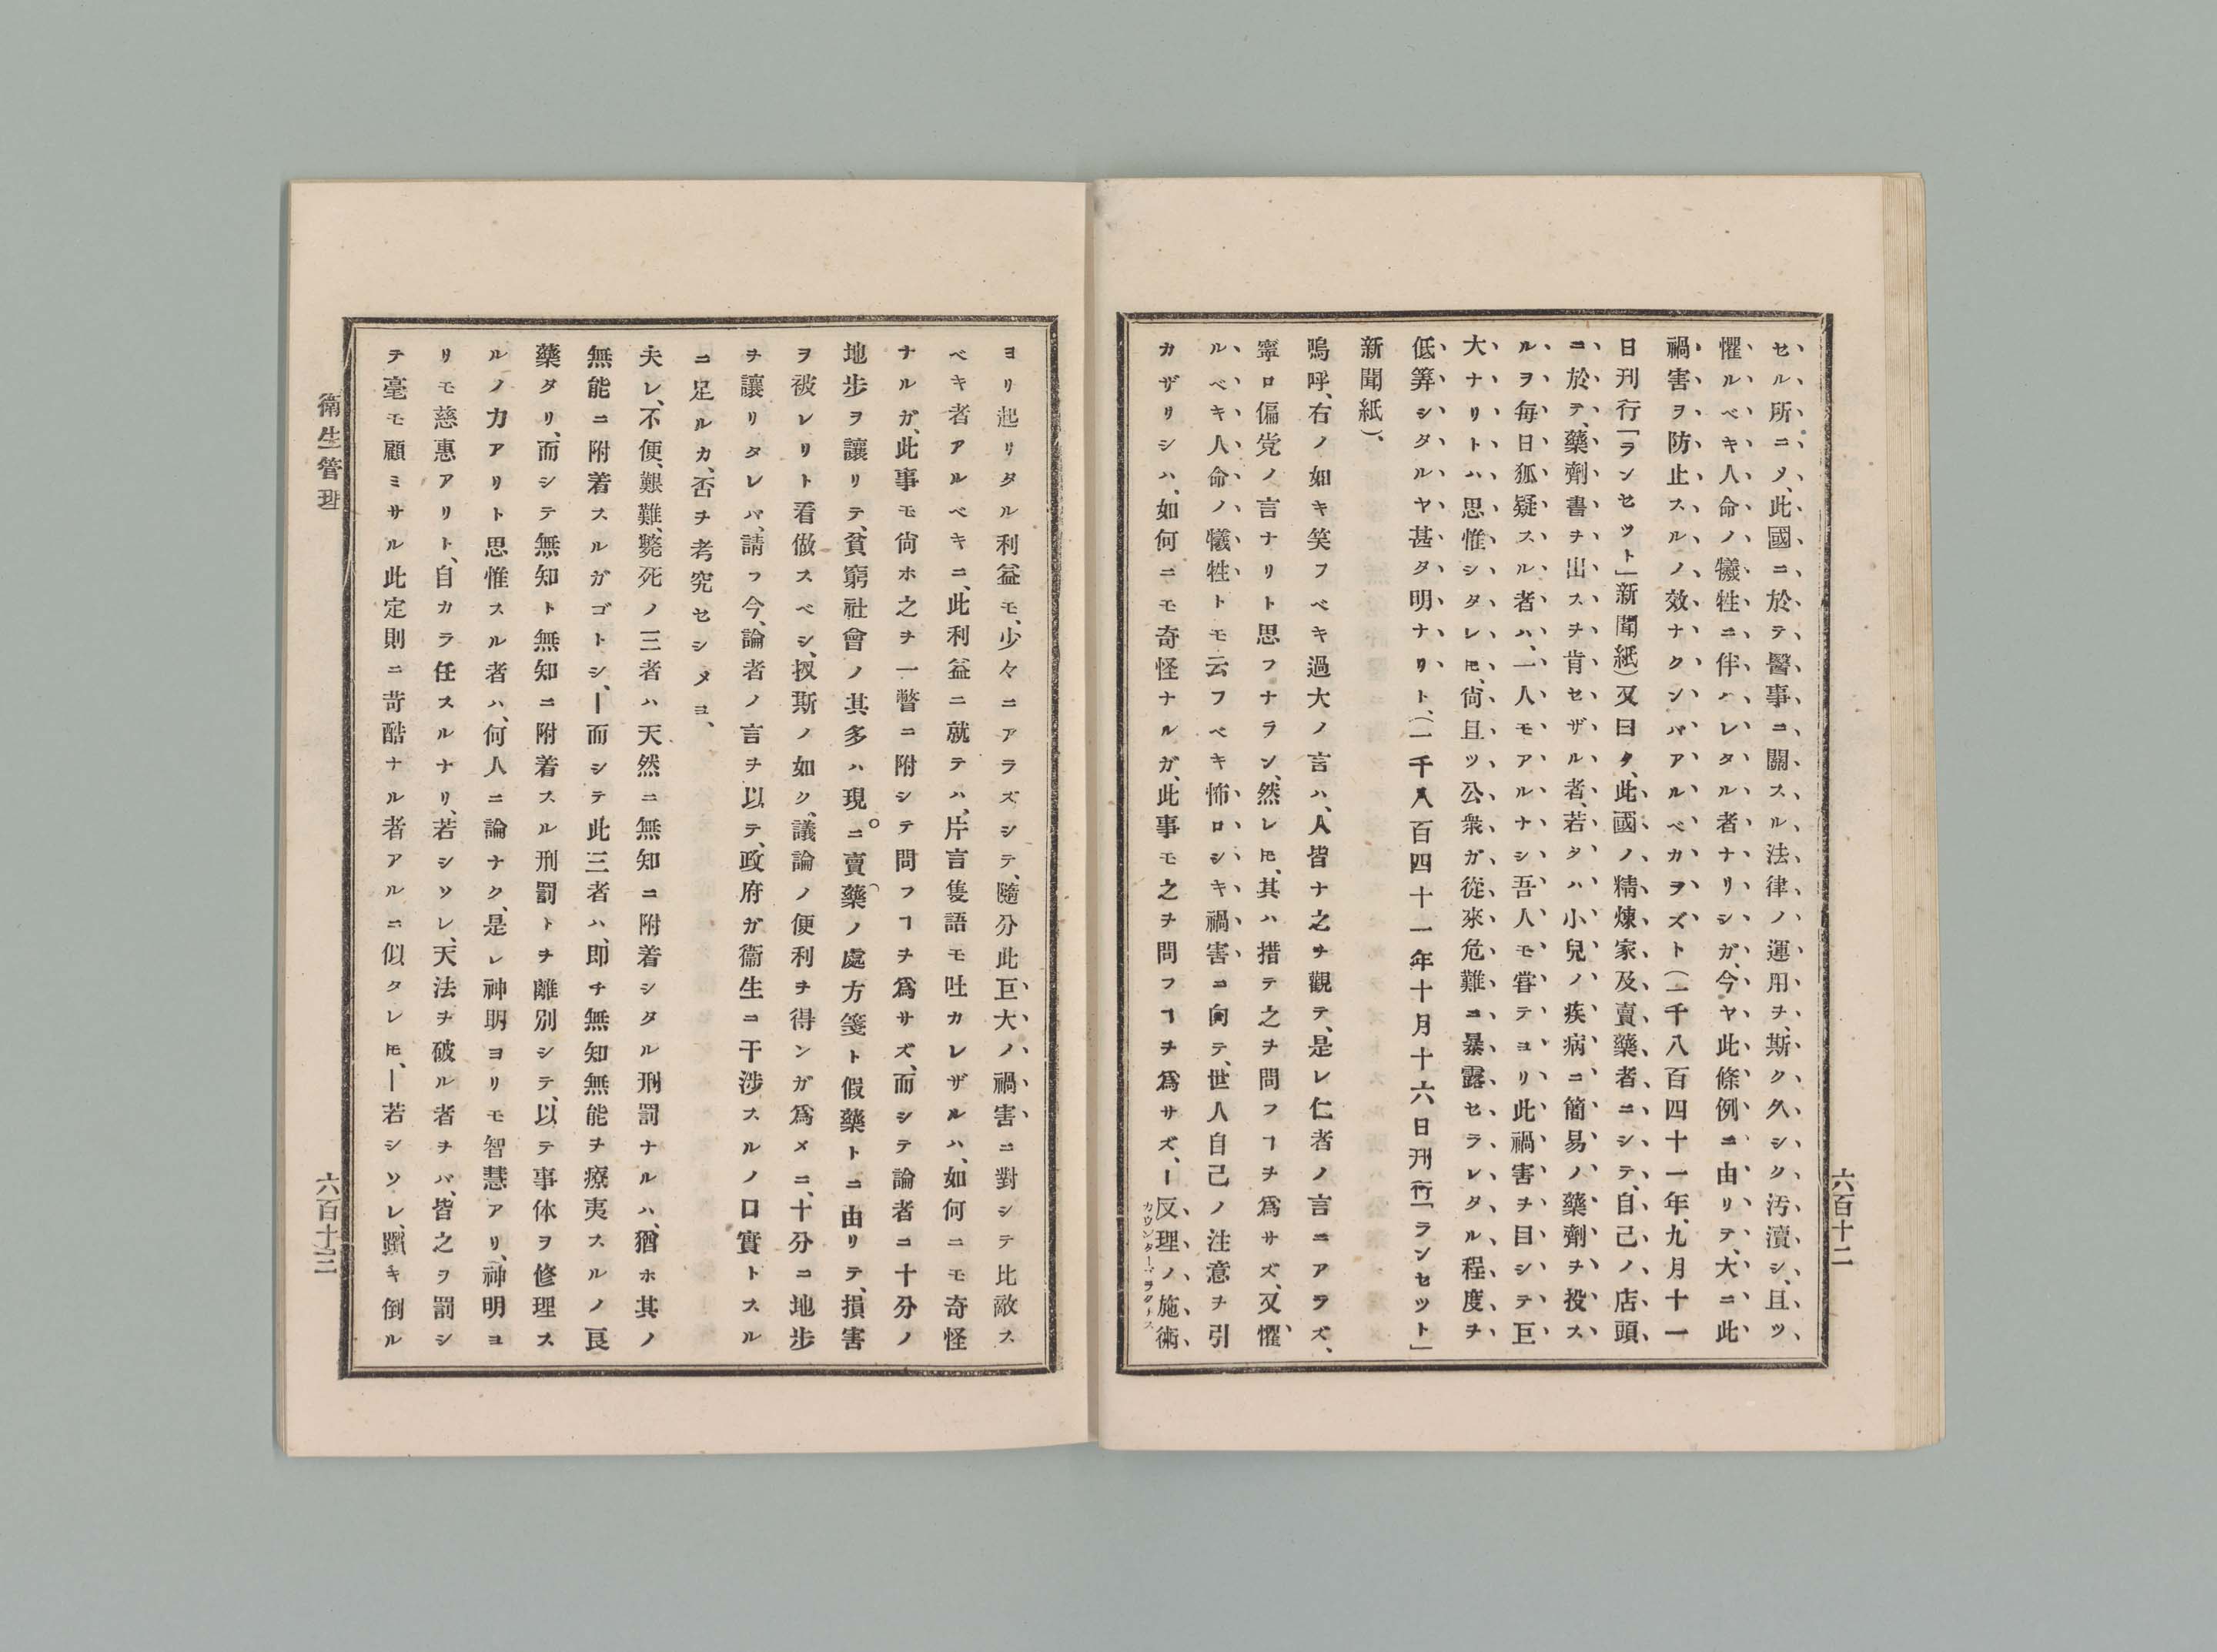 セル所ニメ、此國ニ於テ醫事ニ關スル法律ノ運用ヲ、斯ク久シク汚瀆シ、且ツ
懼ルベキ人命ノ犠牲ニ伴ハレタル者ナリシガ、今ヤ此條例ニ由リテ、大ニ此
禍害ヲ防止スルノ效ナクンバアルベカヲズト(一千八百四十一年、九月十一
日刊行「ランセット」新聞紙)又曰タ、此國ノ精煉家及賣藥者ニシテ、自己ノ店頭
ニ於テ、藥劑書ヲ出スヲ肯セザル者、若タハ小兒ノ疾病ニ簡易ノ藥劑ヲ投ス
ルヲ毎日狐疑スル者ハ、一人モアルナシ吾人モ甞テヨリ此禍害ヲ目シテ巨
大ナリトハ思惟シタレ𪜈、尙且ツ公衆ガ從來危難ニ暴露セラレタル程度ヲ
低筭シタルヤ甚タ明ナリト、(一千八百四十一年十月十六日刊行「ランセット」
新聞紙)、
嗚呼、右ノ如キ笑フベキ過大ノ言ハ、人皆ナ之ヲ觀テ、是レ仁者ノ言ニアラズ、
寧ロ偏党ノ言ナリト思フナラン、然レ𪜈、其ハ措テ之ヲ問フヿヲ爲サズ、又懼
ルベキ人命ノ犠牲トモ云フベキ怖ロシキ禍害ニ向テ、世人自己ノ注意ヲ引
カザリシハ、如何ニモ奇怪ナルガ、此事モ之ヲ問フヿヲ爲サズ、ー反理ノ施術
カウンターイラクタース
六百十二
ヨリ起リタル利益モ、少々ニアラズシテ、隨分此巨大ノ禍害ニ對シテ比敵ス
ベキ者アルベキニ、此利益ニ就テハ、片言隻語モ吐カレザルハ、如何ニモ奇怪
ナルガ、此事モ尙ホ之ヲ一瞥ニ附シテ問フヿヲ爲サズ、而シテ論者ニ十分ノ
地歩ヲ讓リテ、貧窮社會ノ其多ハ現ニ賣藥ノ處方箋ト假藥トニ由リテ、損害
ヲ被レリト看做スベシ、扨斯ノ如ク、議論ノ便利ヲ得ンガ爲メニ、十分ニ地歩
ヲ讓リタレバ、請フ今、論者ノ言ヲ以テ、政府ガ衞生ニ干渉スルノ口實トスル
ニ足ルカ、否ヲ考究セシメヨ、
夫レ、不便、艱難、斃死ノ三者ハ天然ニ無知ニ附着シタル刑罰ナルハ、猶ホ其ノ
無能ニ附着スルガゴトシ、ー而シテ此三者ハ、即チ無知無能ヲ療夷スルノ良
藥タリ、而シテ無知ト無知ニ附着スル刑罰トヲ離別シテ、以テ事体ヲ修理ス
ルノ力アリト思惟スル者ハ、何人ニ論ナク、是レ神明ヨリモ智慧アリ、神明ヨ
リモ慈惠アリト、自カラ任スルナリ、若シソレ、天法ヲ破ル者ヲバ、皆之ヲ罰シ
テ毫モ顧ミサル此定則ニ苛酷ナル者アルニ似タレ𪜈、ー若シソレ、躓キ倒ル
衛生管理
六百十三